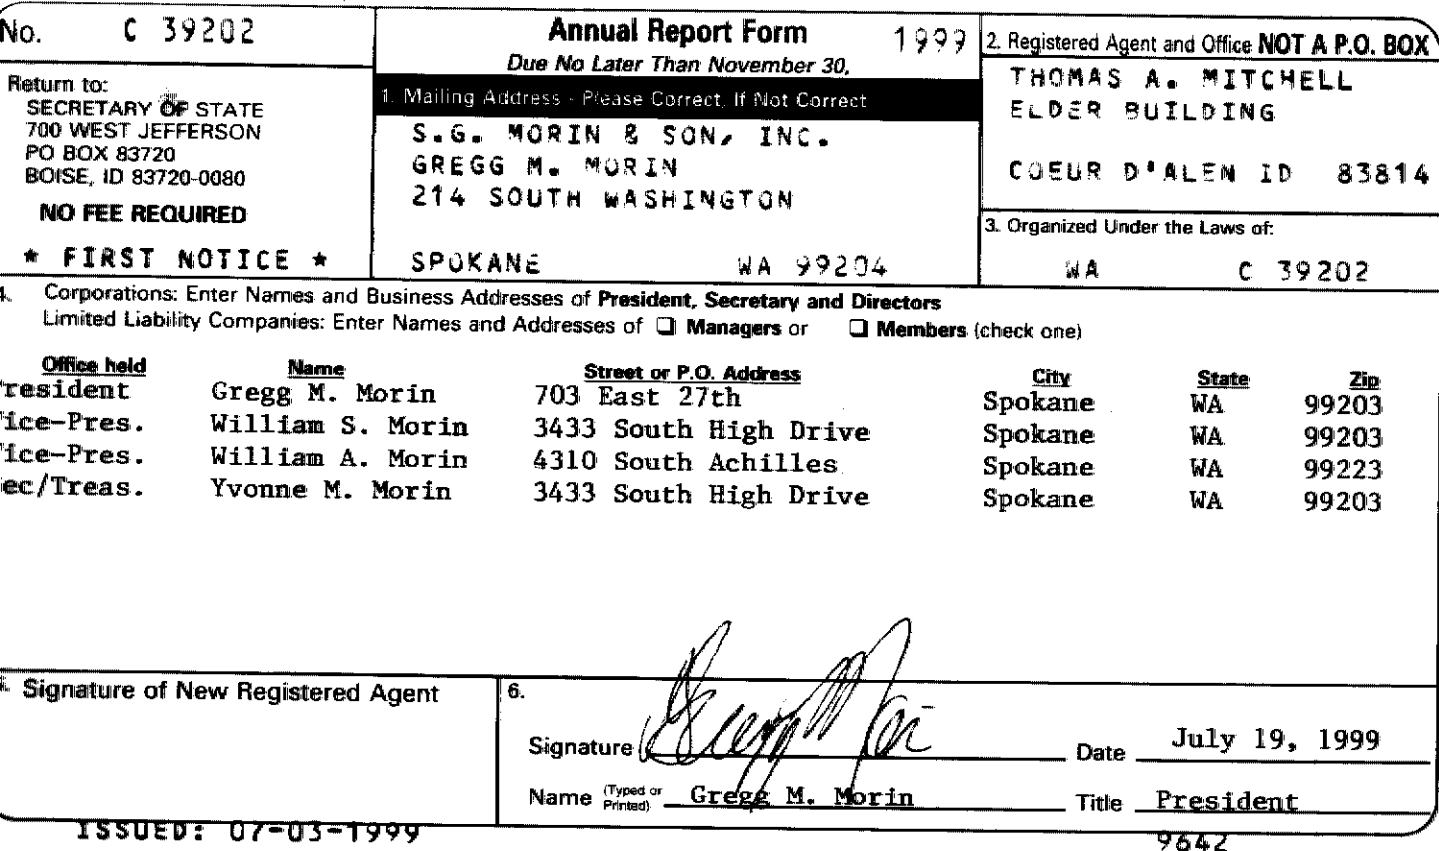 No. C 39202
Return to:
SECRETARY OF STATE
700 WEST JEFFERSON
PO BOX 83720
BOISE, ID 83720-0080
NO FEE REQUIRED
* FIRST NOTICE *
Annual Report Form 1999
Due No Later Than November 30,
1. Mailing Address - Please Correct, If Not Correct
S.G. MORIN & SON, INC.
GREGG M. MORIN
214 SOUTH WASHINGTON
SPOKANE WA 99204
2. Registered Agent and Office NOT A P.O. BOX
THOMAS A. MITCHELL
ELDER BUILDING
COEUR D'ALEN ID 83814
3. Organized Under the Laws of:
WA C 39202
4. Corporations: Enter Names and Business Addresses of President, Secretary and Directors
Limited Liability Companies: Enter Names and Addresses of ❑ Managers or ❑ Members (check one)
Office held Name Street or P.O. Address City State Zip
resident Gregg M. Morin 703 East 27th Spokane WA 99203
ice-Pres. William S. Morin 3433 South High Drive Spokane WA 99203
ice-Pres. William A. Morin 4310 South Achilles Spokane WA 99223
ec/Treas. Yvonne M. Morin 3433 South High Drive Spokane WA 99203
Signature of New Registered Agent
6.
Signature Gregg M Morin Date July 19, 1999
Name (Typed or Printed) Gregg M. Morin Title President
ISSUED: 07-03-1999
9642